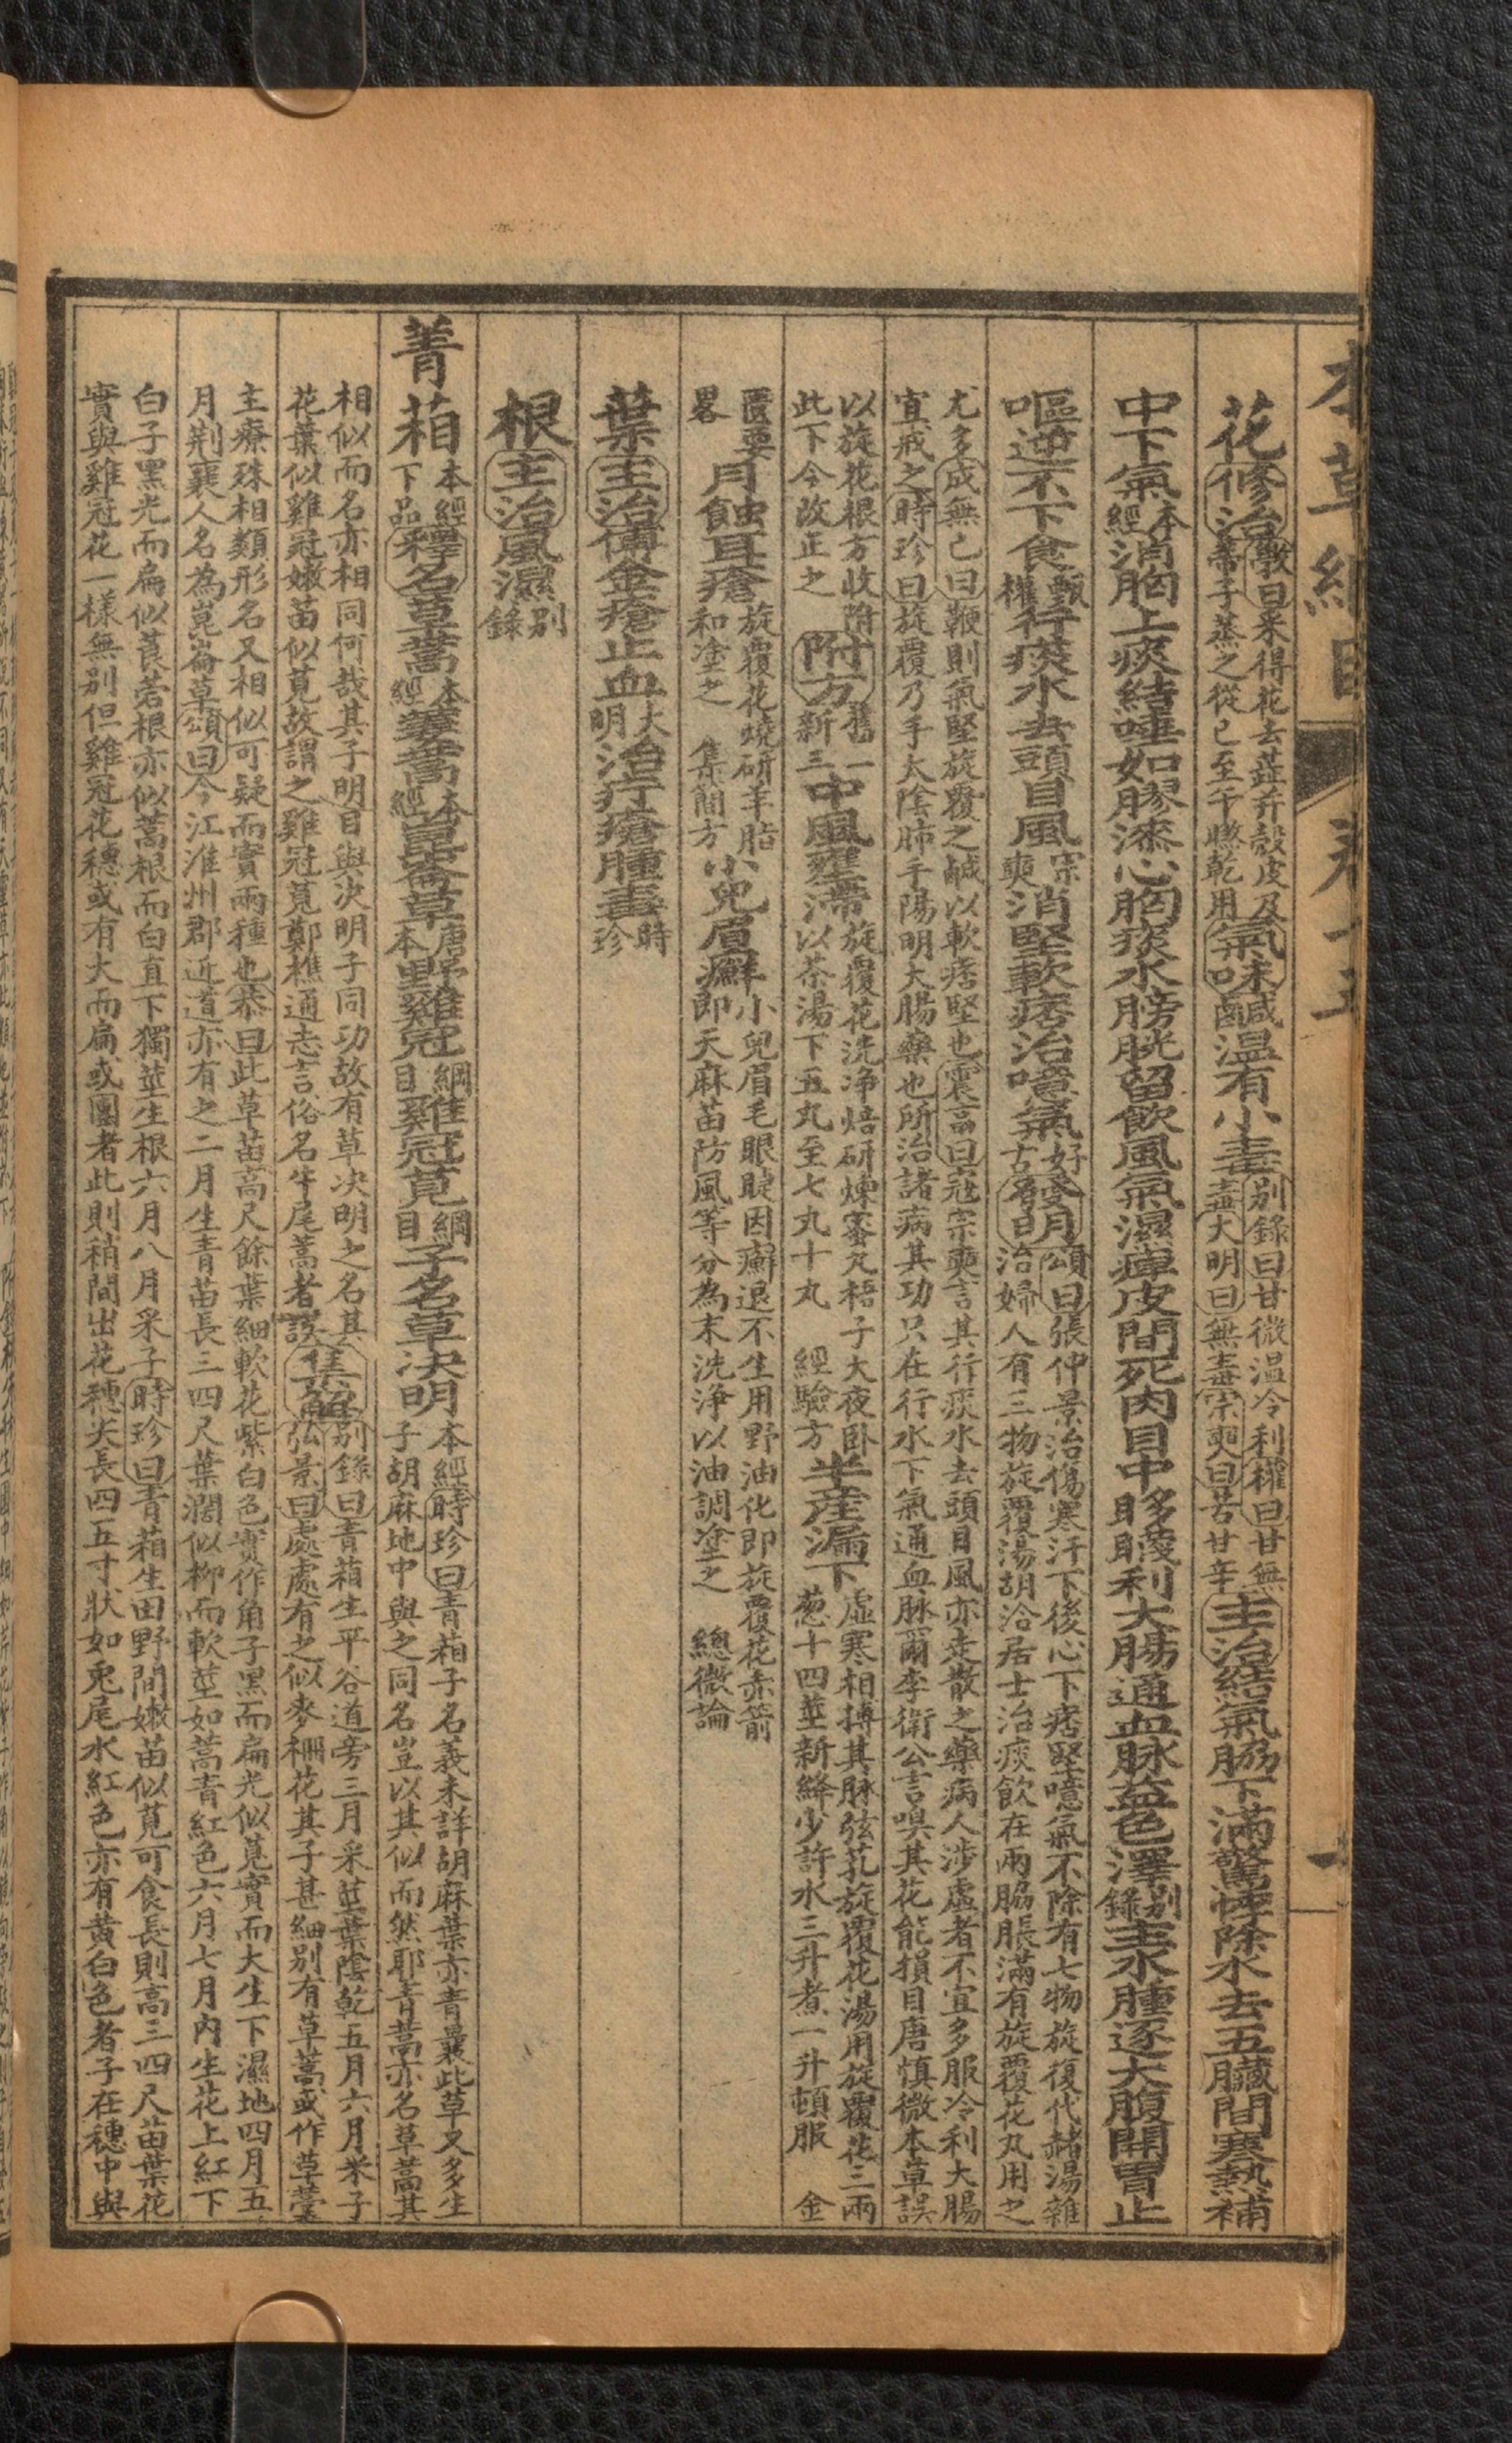 本草綱目 卷十五
花修治斆曰采得花去蕋并殼皮及蒂子蒸之從巳至午曬乾用氣味鹹溫有小毒别錄曰甘微溫冷利權曰甘無毒大明曰無毒宗奭曰苦甘辛主治結氣脇下滿驚悸除水去五臟間寒熱補
中下氣本經消胸上痰結唾如膠漆心胸痰水膀胱留飲風氣濕痺皮間死肉目中眵䁾利大腸通血脉益色澤别錄主水腫逐大腹開胃止
嘔逆不下食甄權行痰水去頭目風宗奭消堅軟痞治噫氣好古發明頌曰張仲景治傷寒汗下後心下痞堅噫氣不除有七物旋復代赭湯雜
治婦人有三物旋覆湯胡洽居士治痰飲在兩脇脹滿有旋覆花丸用之
尤多成無己曰鞕則氣堅旋覆之鹹以軟痞堅也震亨曰寇宗奭言其行痰水去頭目風亦走散之藥病人涉虛者不宜多服冷利大腸
宜戒之時珍曰旋覆乃手太陰肺手陽明大腸藥也所治諸病其功只在行水下氣通血脉爾李衛公言嗅其花能損目唐慎微本草誤
以旋花根方收附此下今改正之附方舊一新三中風壅滯旋覆花洗淨焙研煉蜜丸梧子大夜卧以茶湯下五丸至七丸十丸 經驗方半產漏下虛寒相搏其脉弦芤旋覆花湯用旋覆花三兩
葱十四莖新絳少許水三升煮一升頓服 金
匱要畧月蝕耳瘡旋覆花燒研羊脂和塗之 集簡方小兒眉癬小兒眉毛眼睫因癬退不生用野油花即旋覆花赤箭
即天麻苗防風等分為末洗淨以油調塗之 總微論
葉主治傅金瘡止血大明治疔瘡腫毒時珍
根主治風濕别錄
菁葙本經下品釋名草蒿本經萋蒿本經崑崙草唐本野雞冠綱目雞冠莧綱目子名草決明本經時珍曰青葙子名義未詳胡麻葉亦青蘘此草又多生
子胡麻地中與之同名豈以其似而然耶青蒿亦名草蒿其
相似而名亦相同何哉其子明目與決明子同功故有草決明之名其
花葉似雞冠嫩苗似莧故謂之雞冠莧鄭樵通志言俗名牛尾蒿者誤集解别錄曰青葙生平谷道旁三月采莖葉陰乾五月六月采子
弘景曰處處有之似麥柵花其子甚細别有草蒿或作草藁
主療殊相類形名又相似可疑而實兩種也恭曰此草苗高尺餘葉細軟花紫白色實作角子黑而扁光似莧實而大生下濕地四月五
月荆襄人名為崑崙草頌曰今江淮州郡近道亦有之二月生青苗長三四尺葉濶似柳而軟莖如蒿青紅色六月七月內生花上紅下
白子黑光而扁似莨菪根亦似蒿根而白直下獨莖生根六月八月采子時珍曰青葙生田野間嫩苗似莧可食長則高三四尺苗葉花
實與雞冠花一樣無别但雞冠花穗或有大而扁或團者此則稍間出花穗尖長四五寸狀如兎尾水紅色亦有黄白色者子在穗中與